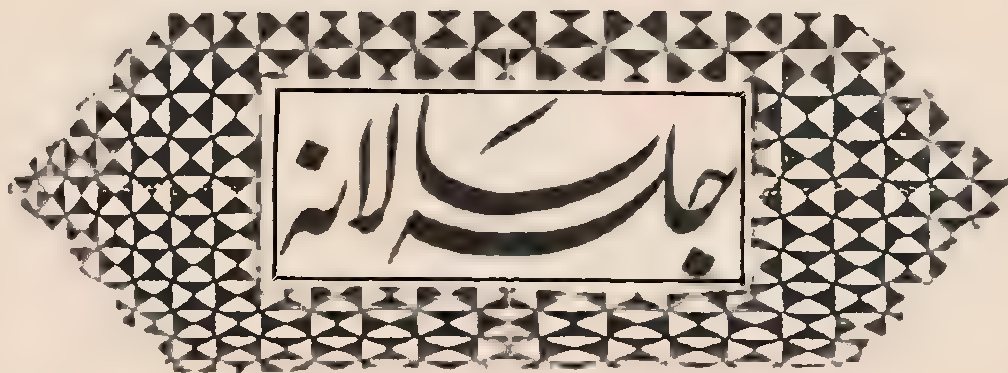 جلسہ سالانہ